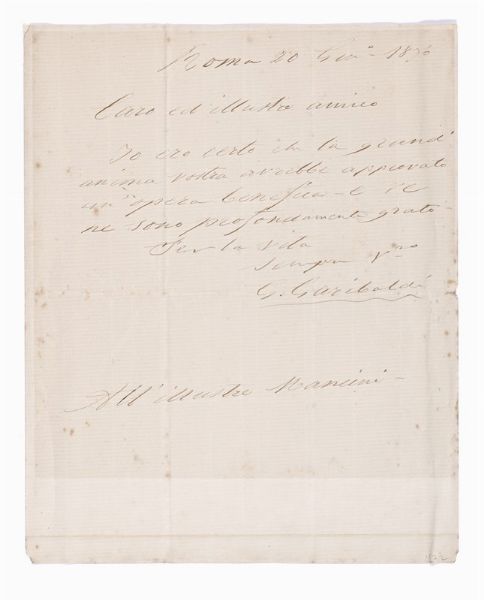 Roma 20 Gen° 1876
Caro ed illustre amico
Io ero certo che la grand'
anima vostra avrebbe approvato
un' opera benefica - e ve
ne sono profondamente grato -
Per la vita
Sempre Vro
G. Garibaldi
All'illustre Mancini -